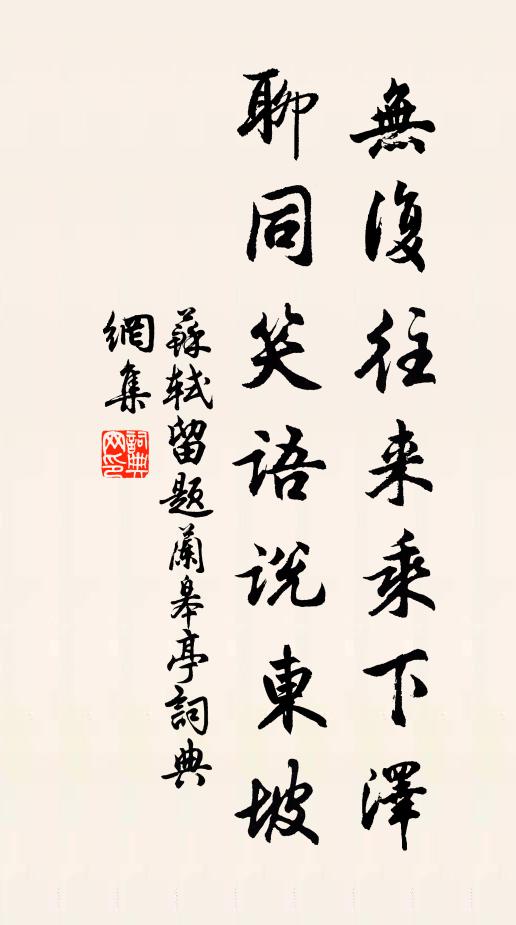 無復往来乘下澤
聊同笑語説東坡
蘇軾留題蘭皋亭詞典
網集
詞典
网印